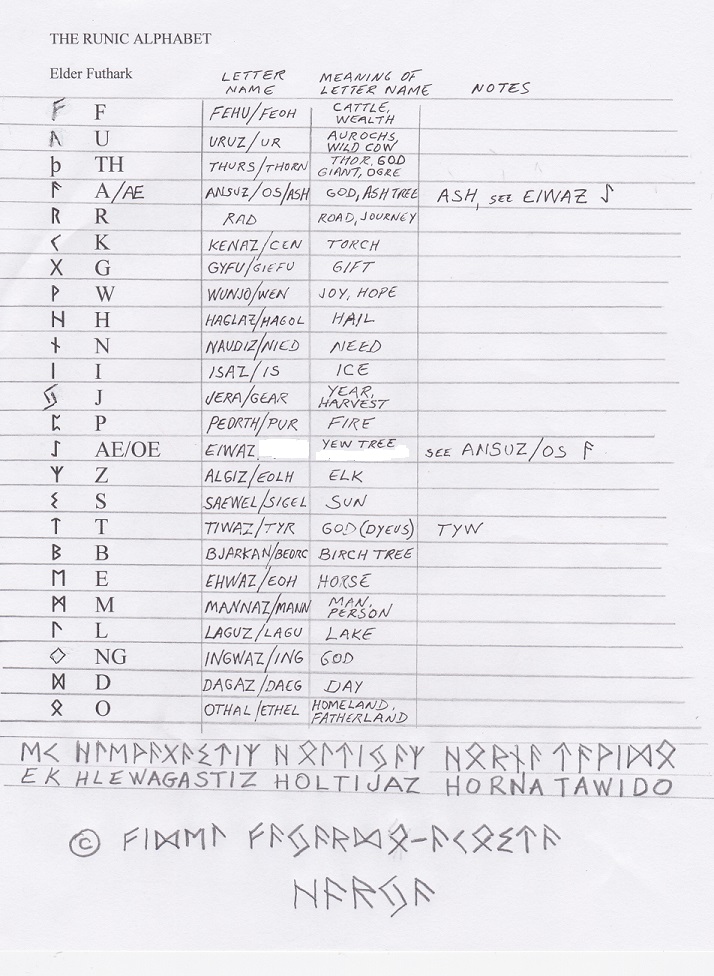 THE RUNIC ALPHABET
Elder Futhark LETTER NAME MEANING OF LETTER NAME NOTES
ᚠ F FEHU/FEOH CATTLE, WEALTH
ᚢ U URUZ/UR AUROCHS, WILD COW
þ TH THURS/THORN THOR, GOD GIANT, OGRE
ᚨ A/AE ANSUZ/OS/ASH GOD, ASH TREE ASH, SEE EIWAZ ᛇ
ᚱ R RAD ROAD, JOURNEY
ᚲ K KENAZ/CEN TORCH
ᚷ G GYFU/GIEFU GIFT
ᚹ W WUNJO/WEN JOY, HOPE
ᚺ H HAGLAZ/HAGOL HAIL
ᚾ N NAUDIZ/NIED NEED
ᛁ I ISAZ/IS ICE
ᛃ J JERA/GEAR YEAR, HARVEST
ᛈ P PEORTH/PUR FIRE
ᛇ AE/OE EIWAZ YEW TREE SEE ANSUZ/OS ᚨ
ᛉ Z ALGIZ/EOLH ELK
ᛊ S SAEWEL/SIGEL SUN
ᛏ T TIWAZ/TYR GOD (DYEUS) TYW
ᛒ B BJARKAN/BEORC BIRCH TREE
ᛖ E EHWAZ/EOH HORSE
ᛗ M MANNAZ/MANN MAN, PERSON
ᛚ L LAGUZ/LAGU LAKE
ᛜ NG INGWAZ/ING GOD
ᛞ D DAGAZ/DAEG DAY
ᛟ O OTHAL/ETHEL HOMELAND, FATHERLAND
ᛖᚲ ᚺᛚᛖᚹᚨᚷᚨᛊᛏᛁᛉ ᚺᛟᛚᛏᛁᛃᚨᛉ ᚺᛟᚱᚾᚨ ᛏᚨᚹᛁᛞᛟ
EK HLEWAGASTIZ HOLTIJAZ HORNA TAWIDO
© ᚠᛁᛞᛖᛚ ᚠᚨᛃᚨᚱᛞᛟ-ᚨᚲᛟᛊᛏᚨ
ᚺᚨᚱᛃᚨ